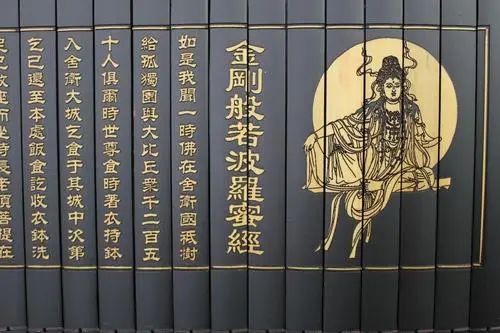 金剛般若波羅蜜經
如是我聞一時佛在舍衛國祇樹
給孤獨園與大比丘眾千二百五
十人俱爾時世尊食時著衣持鉢
入舍衛大城乞食于其城中次第
乞已還至本處飯食訖收衣鉢洗
足已敷座而坐時長老須菩提在